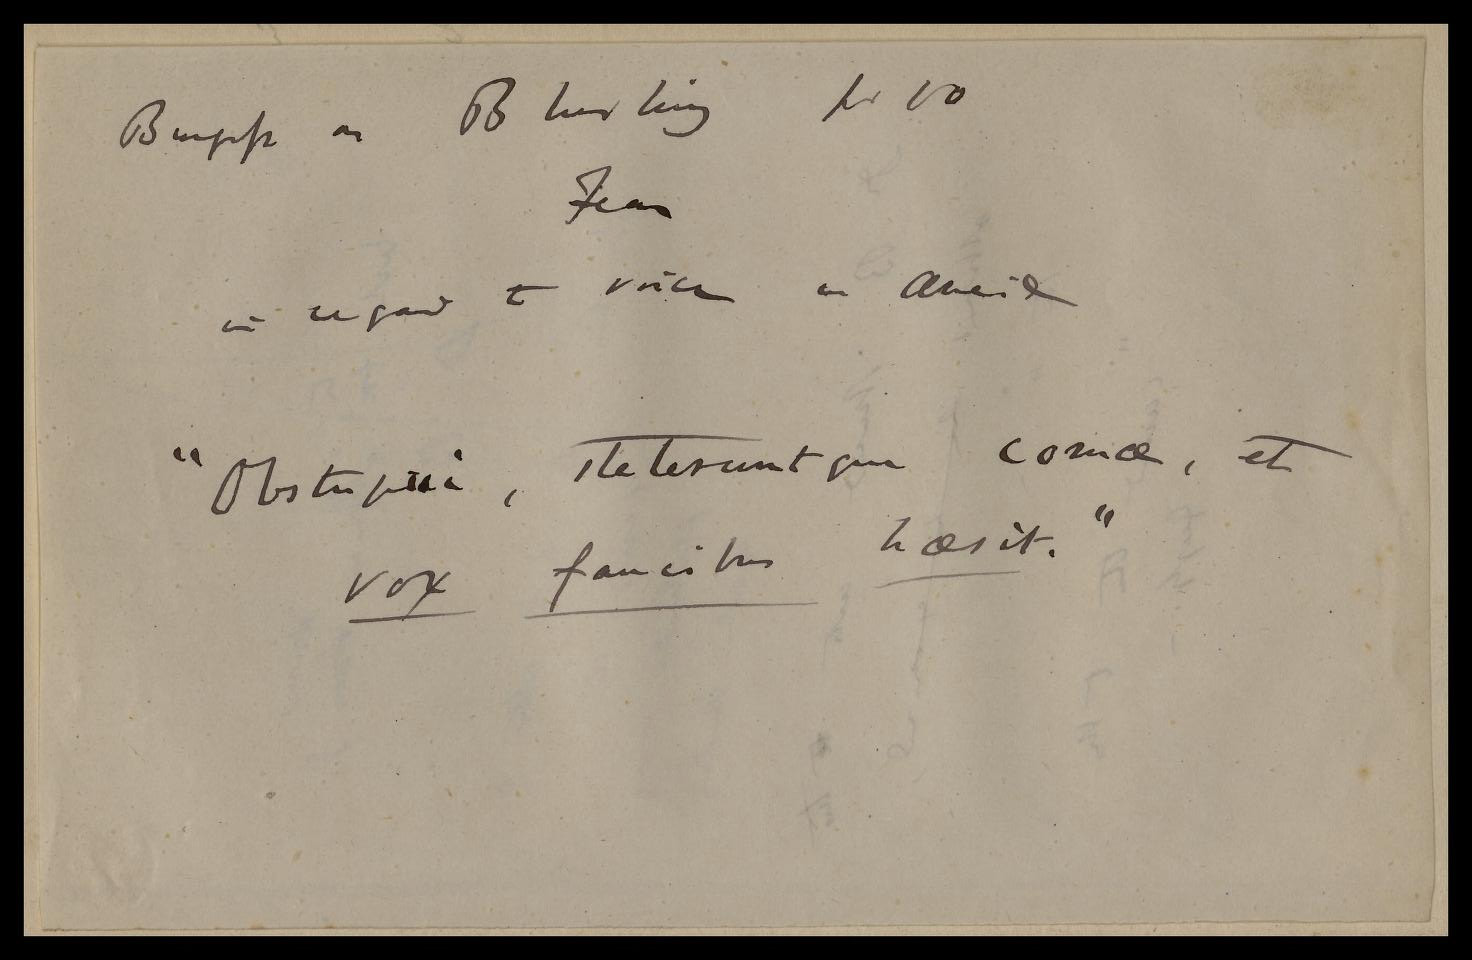 Burgess on Blushing p. 100
Fear
in regard to voice in Aneid
"Obstupui, steteruntque comæ, et
vox faucibus hæsit."